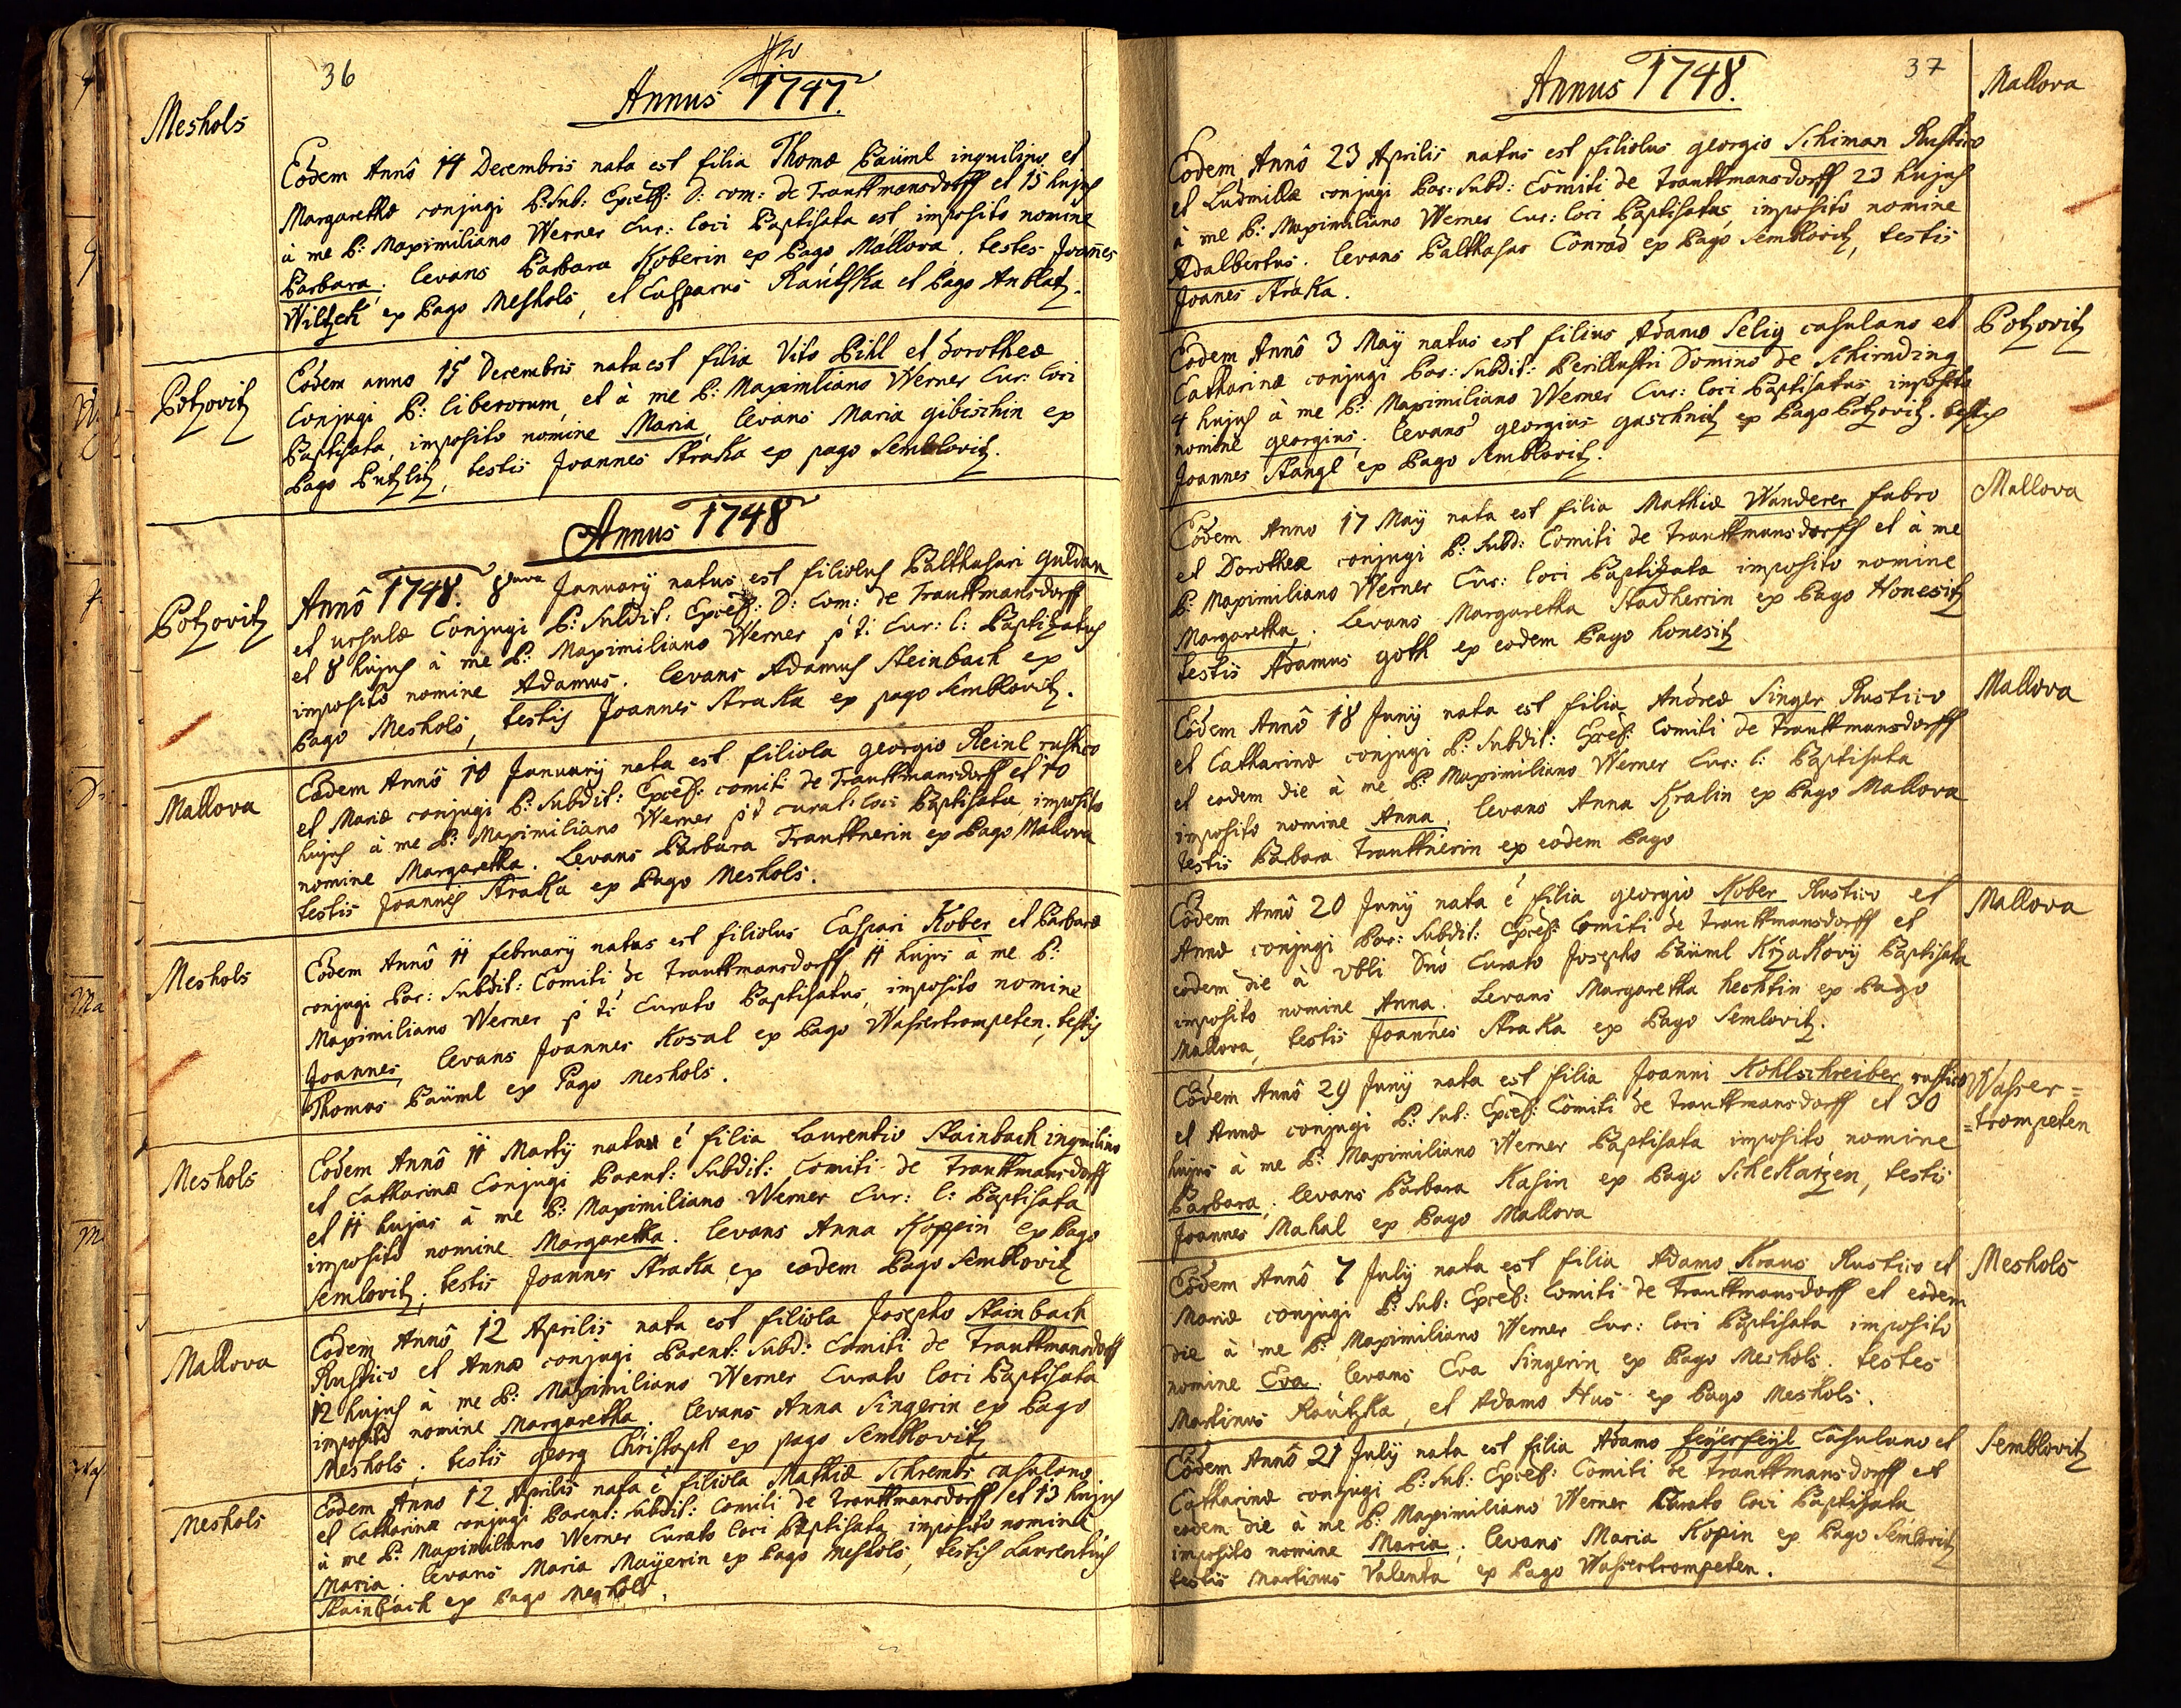 36
Annus 1747.
Meshols
Eodem Annô 14 Decembris nata est filia Thomæ Bäüml inquilino et
Margarethæ conjugi P: Sub: Excell: D: com: de Trauttmansdorff et 15 hujus
à me P: Maximiliano Werner Cur: loci Baptisata est imposito nomine
Barbara, levans Barbara Koberin ex Pago Mallova. testes Joannes
Wiltzek ex Pago Meshols, et Casparus Rautska et Pago Anblatz.
Potzovitz
Eodem anno 15 Decembris nata est filia Vito Pihl et Dorotheæ
Conjugi P: liberorum, et à me P: Maximiliano Werner Cur: loci
Baptisata, imposito nomine Maria levans Maria gibischin ex
Pago Putzlitz, testis Joannes Straka ex pago Semblovitz.
Annus 1748
Potzovitz
Annô 1748. 8 January natus est filiolus Balthasari Guldan
et ursulæ Conjugi P: Subdit: Excell: D: Com: de Trauttmansdorff
et 8 hujus à me P: Maximiliano Werner p t: Cur: l: Baptizatus
imposito nomine Adamus. levans Adamus Steinbach ex
Pago Meshols, testis Joannes Straka ex pago Semblovitz.
Mallova
Eodem Annô 10 January nata est filiola georgio Reinl rustico
et Mariæ conjugi P: Subdit: Excell: comiti de Trauttmansdorff et 10
hujus à me P: Maximiliano Werner p t curat: loci Baptisata, imposito
nomine Margaretha. Levans Barbara Trauttnerin ex Pago Mallova
testis Joannes Straka ex Pago Meshols.
Meshols
Eodem Annô 11 february natus est filiolus Caspari Kober et Barbaræ
conjugi Par: Subdit: Comiti de Trauttmansdorff 11 hujus à me P:
Maximiliano Werner p t: Curato Baptisatus, imposito nomine
Joannes, levans Joannes Kosal ex Pago Wassertrompeten, testis
Thomas Bäüml ex Pago Meshols.
Meshols
Eodem Annô 11 Marty nata é filia Laurentio Stainbach inquilino
et Catharinæ Conjugi Parent: Subdit: Comiti de Trauttmansdorff
et 11 hujus à me P: Maximiliano Werner Cur: l: Baptisata
imposito nomine Margaretha. levans Anna Koppin ex Pago
Semlovitz, testis Joannes Straka ex eodem Pago Semblovitz
Mallova
Eodem Annô 12 Aprilis nata est filiola Josepho Stainbach
Rustico et Annæ conjugi Parent: Subd: Comiti de Trauttmansdorff
12 hujus à me P: Maximiliano Werner Curato loci Baptisata
imposito nomine Margaretha. levans Anna Singerin ex Pago
Meshols, testis georg Christoph ex pago Semblovitz
Meshols
Eodem Anno 12 Aprilis nata é filiola Mathiæ Schrembs casulano
et Catharinæ conjugi Parent: Subdit: Comiti de Trauttmansdorff et 13 hujus
à me P: Maximiliano Werner Curato loci Baptisata imposito nomine
Maria. levans Maria Mayerin ex Pago Meshols, testis Laurentius
Stainbach ex Pago Meshols.
37
Annus 1748.
Mallova
Eodem Annô 23 Aprilis natus est filiolus georgio Schiman Rustico
et Ludmillæ conjugi Par: Subd: Comiti de Trauttmansdorff 23 hujus
à me P: Maximiliano Werner Cur: loci Baptisatus, imposito nomine
Adalbertus. levans Balthasar Conrad ex Pago Semblovitz, testis
Joanes Straka.
Potzovitz
Eodem Annô 3 Maÿ natus est filius Adamo Selig casulano et
Catharinæ conjugi Par: Subdit: Perillustri Domino de Schirnding
4 hujus à me P: Maximiliano Werner Cur: loci Baptisatus imposito
nomine georgius. levans georgius gaschnitz ex Pago Potzovitz. testis
Joannes Stangl ex Pago Semblovitz.
Mallova
Eodem Anno 17 Maÿ nata est filia Mathiæ Wanderer fabro
et Dorotheæ conjugi P: Subd: Comiti de Trauttmansdorff et à me
P: Maximiliano Werner Cur: loci Baptizata imposito nomine
Margaretha. Levans Margaretha Stadherrin ex Pago Honesitz
testis Adamus goth ex eodem Pago honesitz
Mallova
Eodem Annô 18 Juny nata est filia Andreæ Singer Rustico
et Catharinæ conjugi P: Subdit: Excel: Comiti de Trauttmansdorff
et eodem die à me P: Maximiliano Werner Cur: l: Baptisata
imposito nomine Anna. levans Anna Kralin ex Pago Mallova
testis Barbara Trauttnerin ex eodem Pago
Mallova
Eodem Annô 20 Juny nata é filia georgio Kober Rustico et
Annæ conjugi Par: Subdit: Excel: Comiti de Trauttmansdorff et
eodem die à Vbli Dno Curato Josepho Bäuml Krzakovy Baptisata
imposito nomine Anna. Levans Margaretha hechtin ex Pago
Mallova, testis Joannes Straka ex Pago Semlovitz.
Wasser=
=trompeten
Eodem Annô 29 Juny nata est filia Joanni Kohlschreiber rustico
et Annæ conjugi P: Sub: Excel: Comiti de Trauttmansdorff et 30
hujus à me P: Maximiliano Werner Baptisata imposito nomine
Barbara. levans Barbara Kasin ex Pago Schekarzen, testis
Joannes Mahal ex Pago Mallova
Meshols
Eodem Annô 7 July nata est filia Adamo Kraus Rustico et
Mariæ conjugi P: Sub: Excel: Comiti de Trauttmansdorff et eodem
die à me P: Maximiliano Werner Cur: loci Baptisata imposito
nomine Eva. levans Eva Singerin ex Pago Meshols. testes
Martinus Rautzka, et Adamo Hus ex Pago Meshols.
Semblovitz
Eodem Annô 21 July nata est filia Adamo feyerfeyl Casulano et
Catharinæ conjugi P: Sub: Excel: Comiti de Trauttmansdorff et
eodem die à me P: Maximiliano Werner Curato loci Baptisata
imposito nomine Maria. levans Maria Kopin ex Pago Semlovitz
testis Martinus Valenta ex Pago Wassertrompeten.